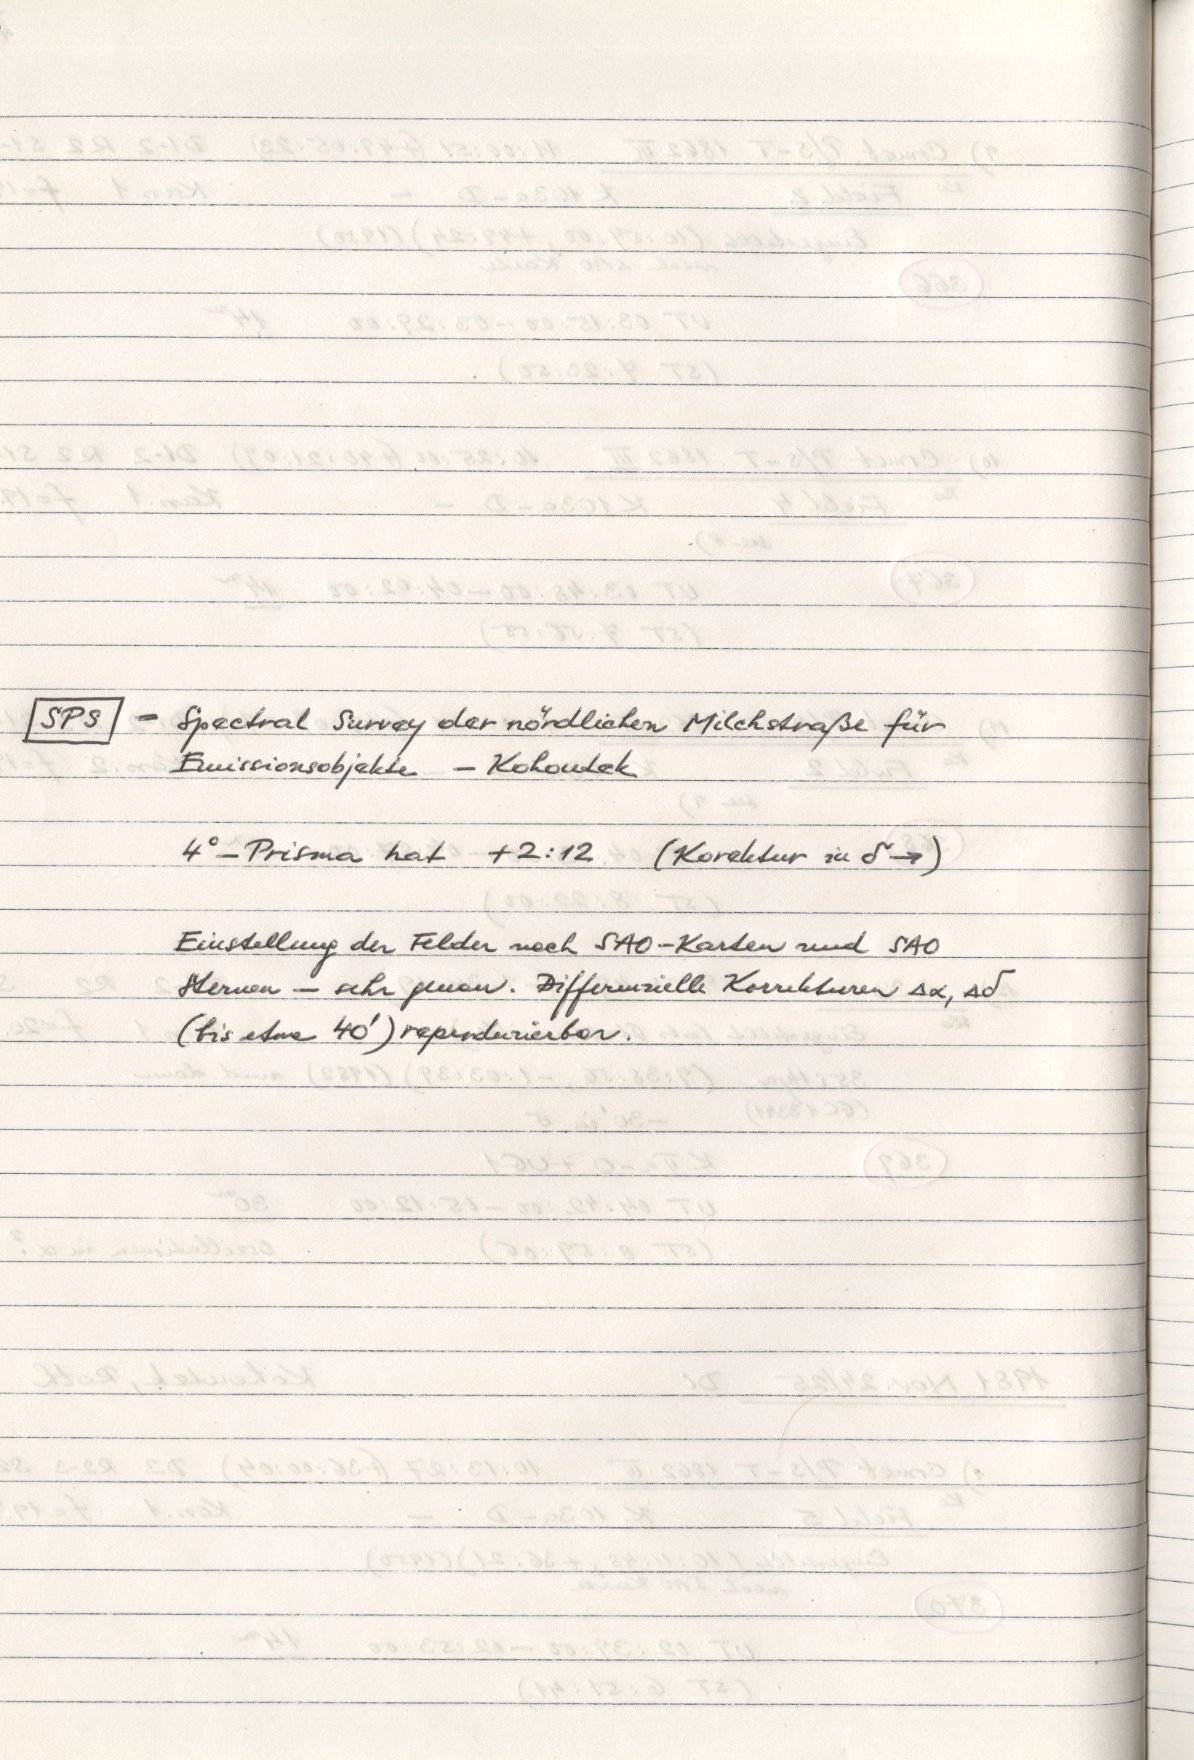 SPS - Spectral Survey der nördlichen Milchstraße für
Emissionsobjekte - Kohoutek
4°-Prisma hat +2:12 (Korektur in δ →)
Einstellung der Felder nach SAO-Karten und SAO
Sternen - sehr genau. Differenzielle Korrekturen Δα, Δδ
(bis etwa 40') reproduzierbar.